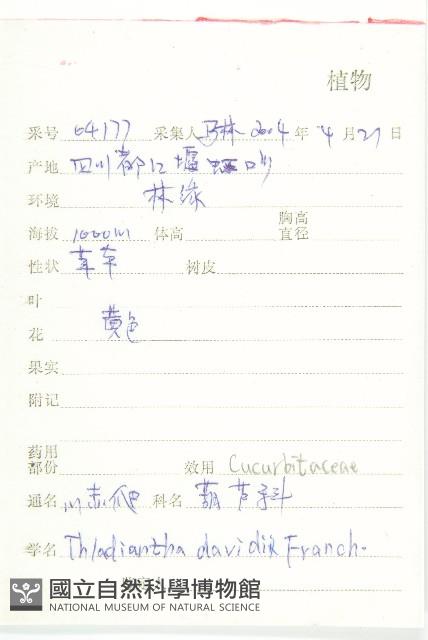 植物
采号 64177 采集人 林 2004 年 4 月 27 日
产地 四川都江堰
环境 林缘
胸高
海拔 1000m 体高 直径
性状 草 树皮
叶
花 黄色
果实
附记
药用
部份 效用 Cucurbitaceae
通名 川赤爬 科名 葫芦科
学名 Thladiantha davidii Franch.
國立自然科學博物館
NATIONAL MUSEUM OF NATURAL SCIENCE